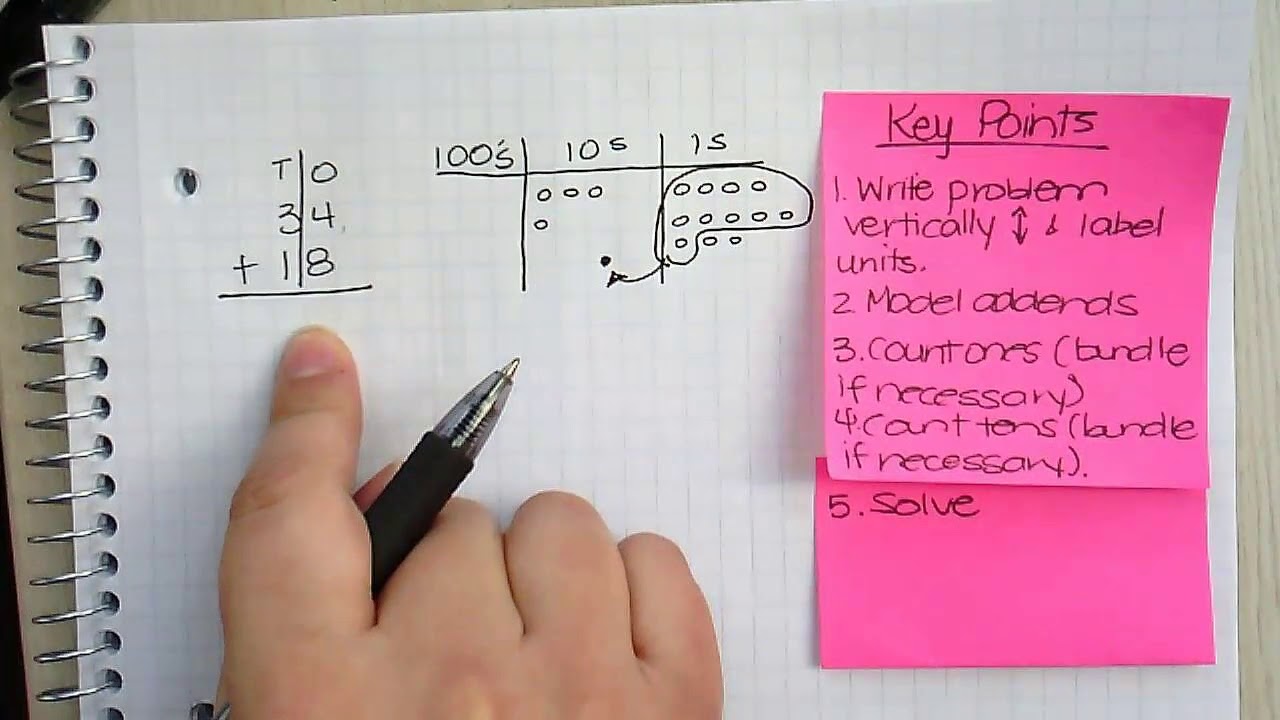 T O
3 4
+ 1 8
100's 10s 1s
Key Points
1. Write problem
vertically ↕ & label
units.
2. Model addends
3. Count ones (bundle
if necessary)
4. Count tens (bundle
if necessary).
5. Solve